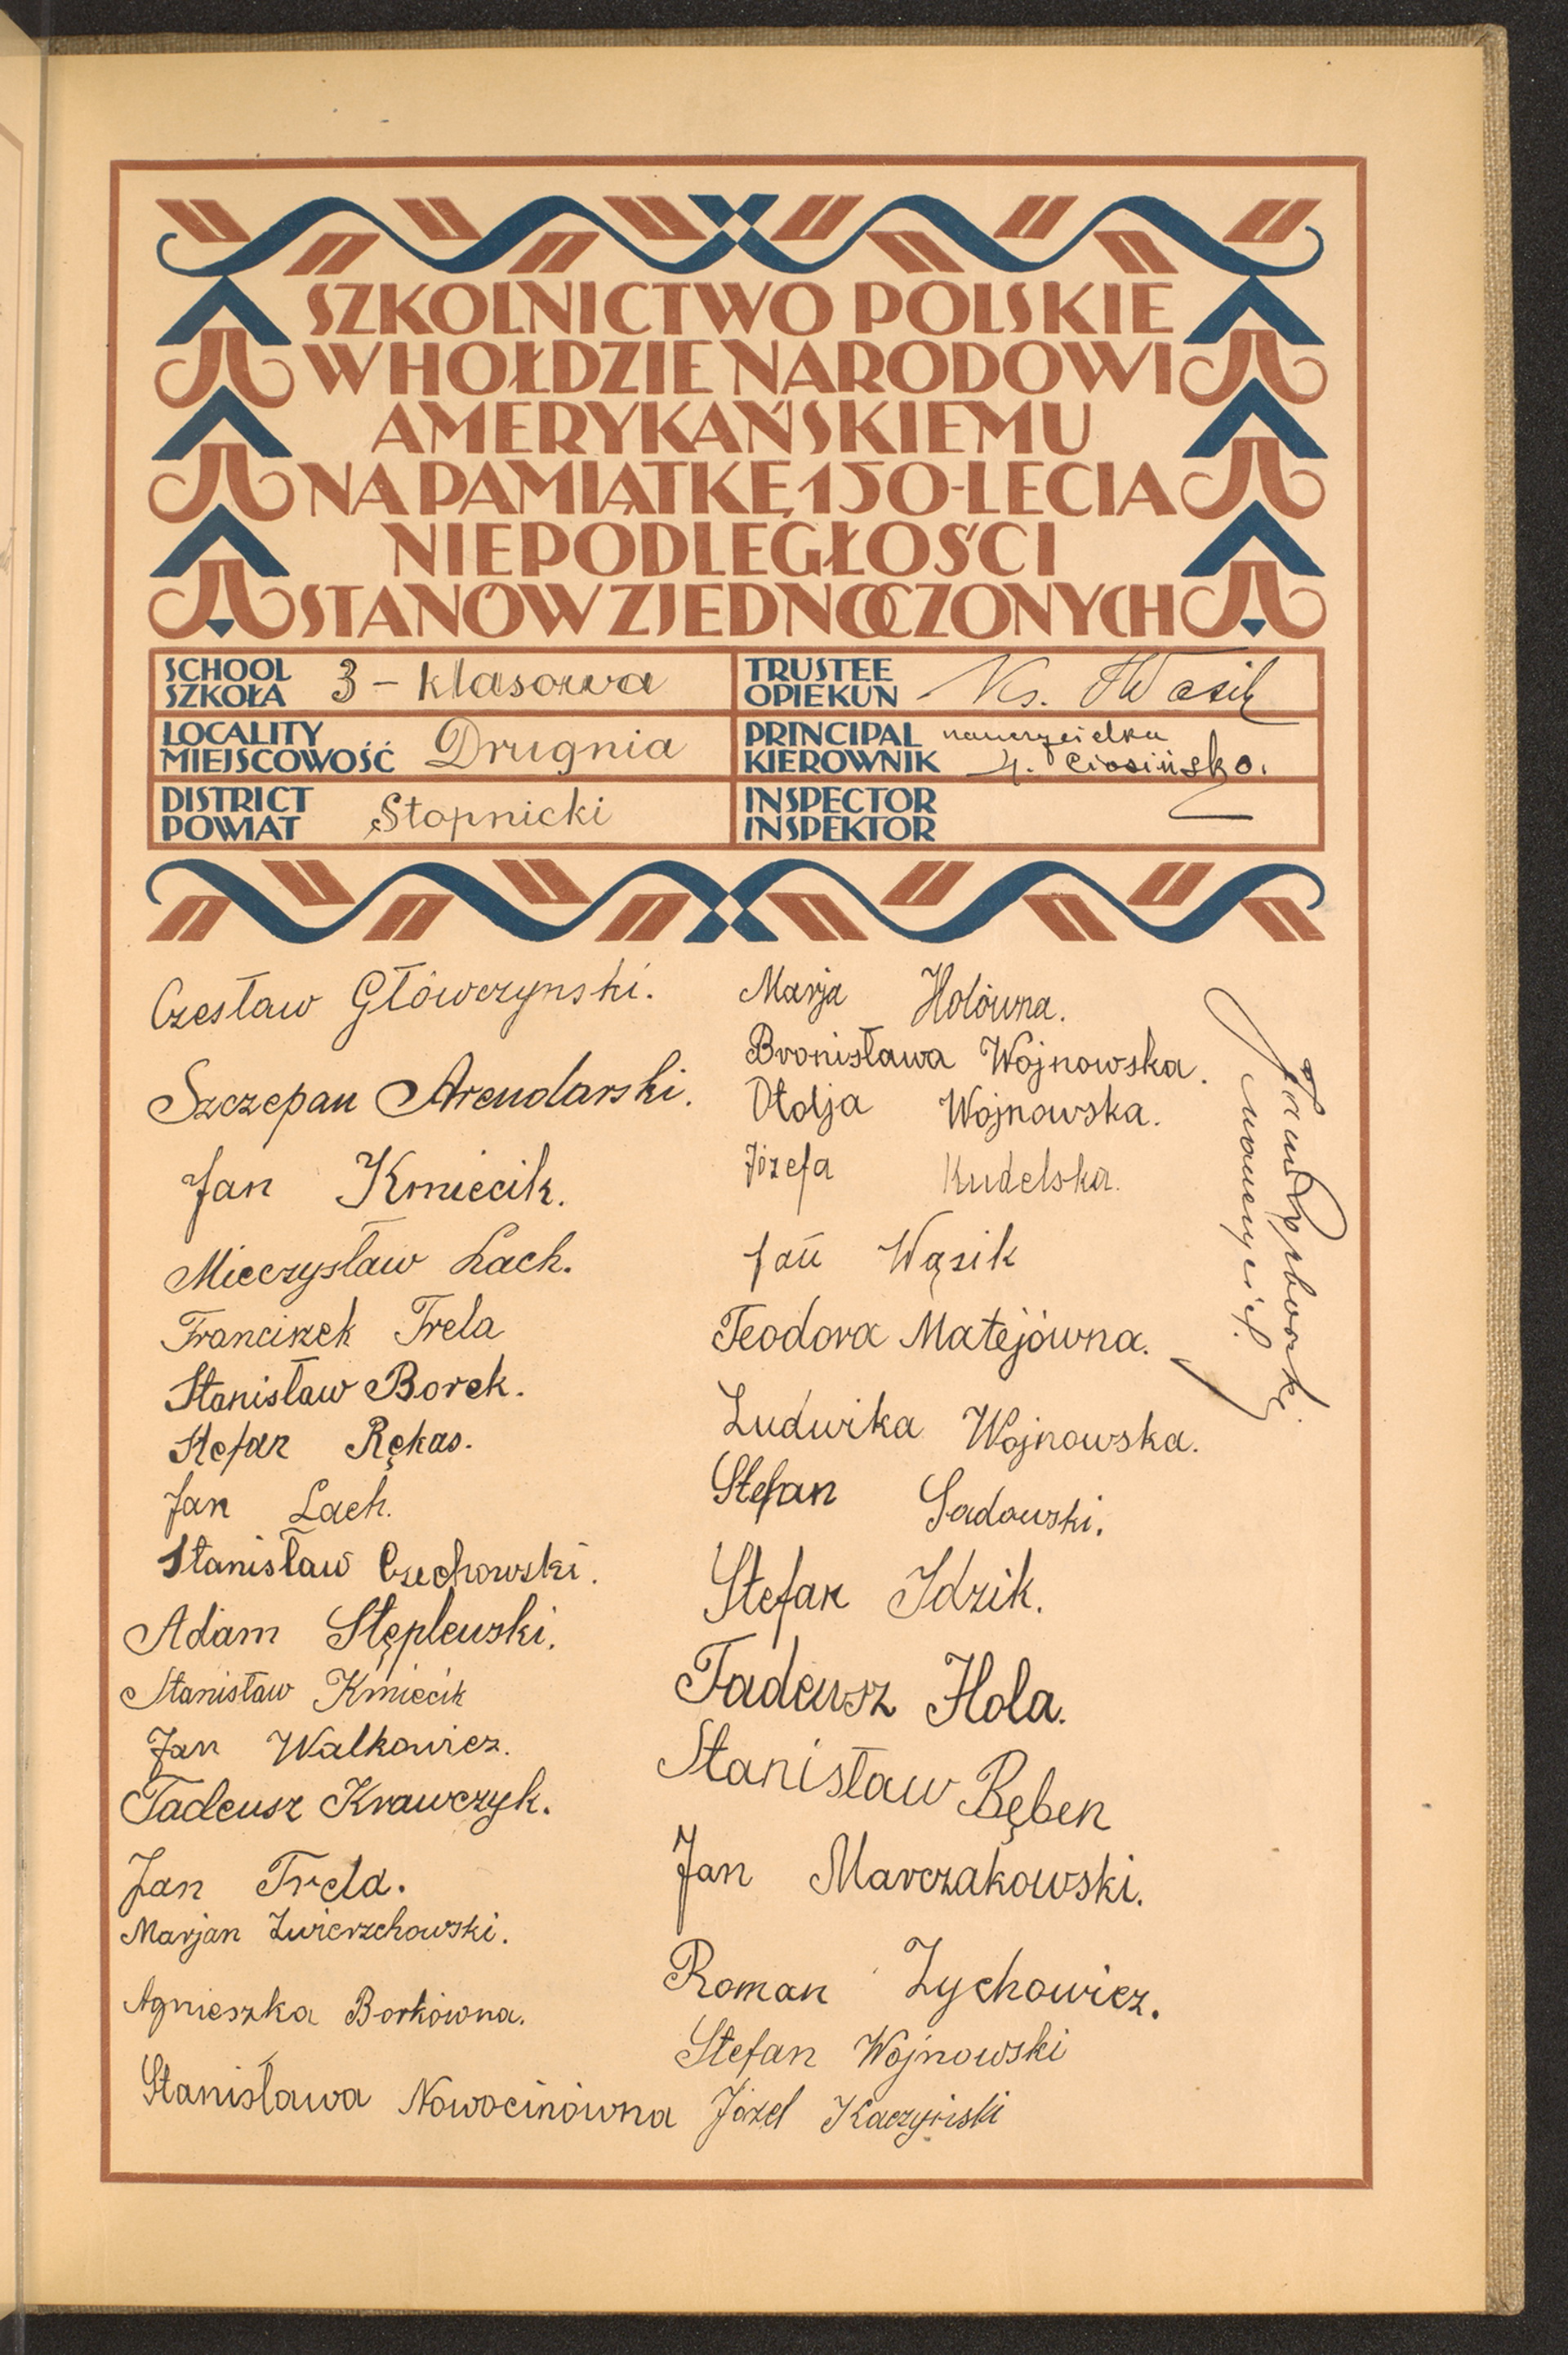 SZKOLNICTWO POLSKIE
W HOŁDZIE NARODOWI
AMERYKAŃSKIEMU
NA PAMIĄTKĘ 150-LECIA
NIEPODLEGŁOŚCI
STANÓW ZJEDNOCZONYCH
SCHOOL
SZKOŁA 3 - klasowa
TRUSTEE
OPIEKUN Ks. Wąsik
LOCALITY
MIEJSCOWOŚĆ Drugnia
PRINCIPAL nauczycielka
KIEROWNIK Ciosińska.
DISTRICT
POWIAT Stopnicki
INSPECTOR
INSPEKTOR
Czesław Główczynski.
Szczepan Arendarski.
Jan Kmiecik.
Mieczysław Lach.
Franciszek Trela
Stanisław Borek.
Stefan Rękas.
Jan Lach.
Stanisław Czechowski.
Adam Stęplewski.
Stanisław Kmiecik
Jan Walkowicz.
Tadeusz Krawczyk.
Jan Trela.
Marjan Zwierzchowski.
Agnieszka Borkówna.
Stanisława Nowocinówna
Marja Holówna.
Bronisława Wojnowska.
Otolja Wojnowska.
Józefa Kudelska.
Jan Wąsik
Teodora Matejówna.
Ludwika Wojnowska.
Stefan Sadowski.
Stefan Idzik.
Tadeusz Hola.
Stanisław Bęben
Jan Marczakowski.
Roman Zychowicz.
Stefan Wojnowski
Józef Kaczyński
nauczyciel.